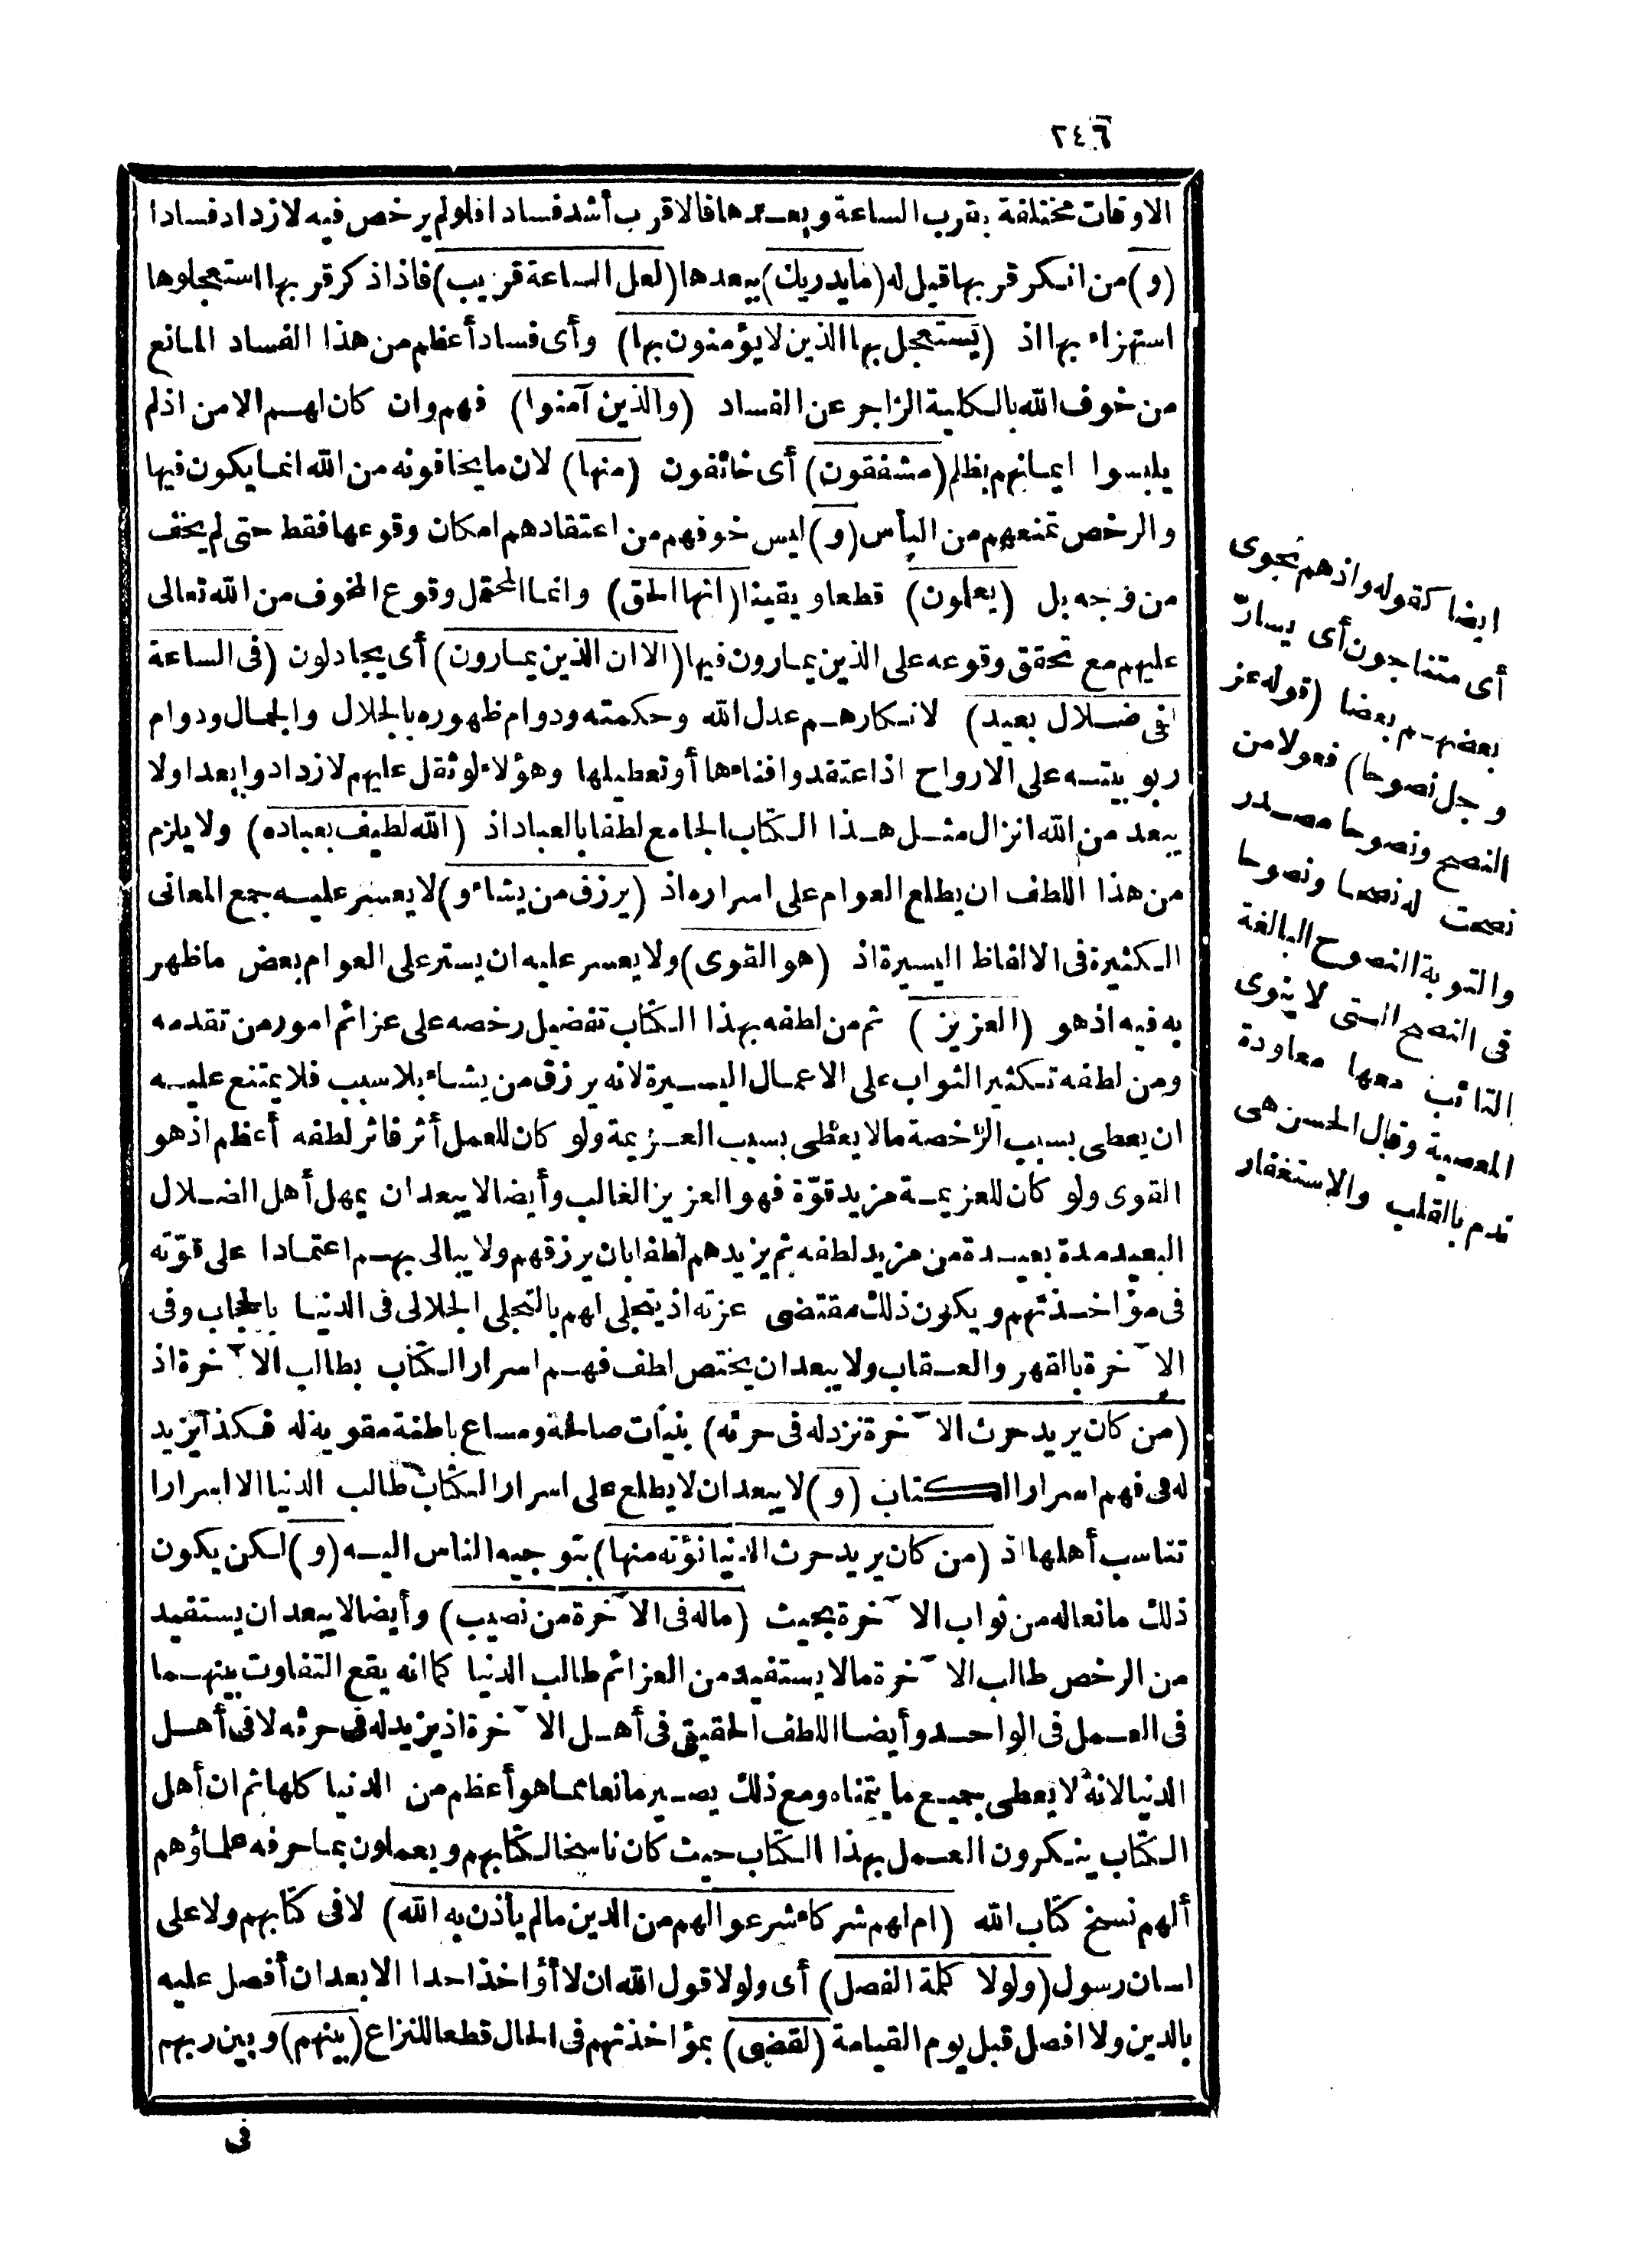 ٢٤٦
الاوقات مختلفة بقرب الساعة وبعدها فالاقرب أشد فسادا فلولم يرخص فيه لازداد فسادا
(و) من انكر قربها قيل له (مايدريك) ببعدها (لعل الساعة قريب) فاذا ذكر قربها استعجلوها
استهزاء بها اذ (يستعجل بها الذين لا يؤمنون بها) وأى فساد أعظم من هذا الفساد المانع
من خوف الله بالكلية الزاجر عن الفساد (والذين آمنوا) فهم وان كان لهم الامن اذ لم
يلبسوا ايمانهم بظلم (مشفقون) أى خائفون (منها) لان ما يخافونه من الله انما يكون فيها
والرخص تمنعهم من اليأس (و) ليس خوفهم من اعتقادهم امكان وقوعها فقط حتى لم يخف
من وجه بل (يعلمون) قطعا و يقينا (انها الحق) وانما المحتمل وقوع المخوف من الله تعالى
عليهم مع تحقق وقوعه على الذين يمارون فيها (الا ان الذين يمارون) أى يجادلون (فى الساعة
لفى ضلال بعيد) لانكارهم عدل الله وحكمته ودوام ظهوره بالجلال والجمال ودوام
ربوبيتسه على الارواح اذا عتقدوا فناءها أو تعطيلها وهؤلاء لو ثقل عليهم لازدادوا بعدا ولا
يبعد من الله انزال مثل هذا الكتاب الجامع لطفا بالعباد اذ (الله لطيف بعباده) ولا يلزم
من هذا اللطف ان يطلع العوام على اسراره اذ (يرزق من يشاء و) لا يعسر عليه جمع المعانى
الكثيرة فى الالفاظ اليسيرة اذ (هو القوى) ولا يعسر عليه ان يستر على العوام بعض ماظهر
به فيه اذ هو (العزيز) ثم من لطفه بهذا الكتاب تفضيل رخصه على عزائم امور من تقدمه
ومن لطفه تكثير الثواب على الاعمال اليسيرة لانه يرزق من يشاء بلا سبب فلا يمتنع عليه
ان يعطى بسبب الرخصة مالا يعطى بسبب العزيمة ولو كان للعمل أثر فاثر لطفه أعظم اذ هو
القوى ولو كان للعزيمة مزيد قوّة فهو العزيز الغالب وأيضا لا يبعد ان يمهل أهل الضلال
البعيد مدة بعيدة من مزيد لطفه ثم يزيدهم لطفا بان يرزقهم ولا يبالى بهم اعتمادا على قوّته
فى مؤاخذتهم ويكون ذلك مقتضى عزته اذ يتجلى لهم بالتجلى الجلالى فى الدنيا بالحجاب وفى
الآخرة بالقهر والعقاب ولا يبعد ان يختص لطف فهم اسرار الكتاب بطالب الآخرة اذ
(من كان يريد حرث الآخرة نزد له فى حرثه) بنيات صالحة ومساع باطنة مقوية له فكذا يزيد
له فى فهم اسرار الكتاب (و) لا يبعد ان لا يطلع على اسرار الكتاب طالب الدنيا الا اسرارا
تناسب أهلها اذ (من كان يريد حرث الدنيا نؤته منها) بتوجيه الناس اليه (و) لكن يكون
ذلك مانعا له من ثواب الآخرة بحيث (ماله فى الآخرة من نصيب) وأيضا لا يبعد ان يستفيد
من الرخص طالب الآخرة مالا يستفيد من العزائم طالب الدنيا كما انه يقع التفاوت بينهما
فى العمل فى الواحد وأيضا اللطف الحقيقى فى أهل الآخرة اذ يزيد له فى حرثه لا فى أهل
الدنيا لانه لا يعطى جميع ما يتمناه ومع ذلك يصير مانعا عما هو أعظم من الدنيا كلها ثم ان أهل
الكتاب ينكرون العمل بهذا الكتاب حيث كان ناسخا لكتابهم ويعملون بما حرفه علماؤهم
ألهم نسخ كتاب الله (ام لهم شركاء شرعوا لهم من الدين مالم يأذن به الله) لا فى كتابهم ولا على
لسان رسول (ولولا كلمة الفصل) أى ولولا قول الله ان لا أؤاخذ احدا الا بعد ان أفصل عليه
بالدين ولا افصل قبل يوم القيامة (لقضى) بمؤاخذتهم فى الحال قطعا للنزاع (بينهم) وبين ربهم
فى
ايضا كقوله واذهم نجوى
أى متناجون أى يسارّ
بعضهم بعضا (قوله عز
وجل نصوحا) فعولا من
النصح ونصوحا مصدر
نصحت له نصحا ونصوحا
والتوبة النصوح البالغة
فى النصح التى لا ينوى
التائب معها معاودة
المعصية وقال الحسن هى
ندم بالقلب والاستغفار